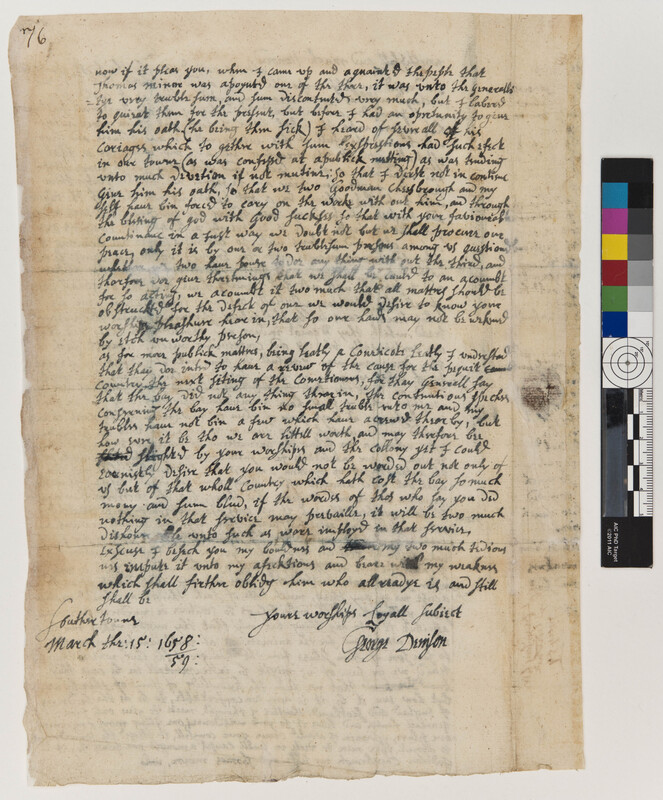 76
now if it pleas you, when I came up and aquainted the peple that
Thomas minor was apoynted one of the three, it was unto the Generallitie
very trublesum, and sum discontented very much, but I labored
to quiat them for the present, but before I had an oportunity to give
him his oath (he being then sick) I heard of severall of his
cariages which to gether with sum expressions had such efect
in our towne (as was confessed at a publick meetting) as was tending
unto much devetion if not mutinie; so that I durst not in contineu
Give him his oath, so that we two Goodman Cheesbrough and my
self have bin forced to cary on the worke with out him, and through
the blesing of god with Good sucksess so that with your faviourable
Countinance in a just way we doubt not but we shall procure our
peace, only it is by one or two trublesum persons among us question
whether two have power to doe any thing with out the third, and
therfore we give thretnings that we shall be caled to an acoumbt
for so acting; we acoumbt it two much that all matters should be
obstructed for the defect of one we would desire to know your
worships pleashure hearin, that so our hands may not be wekned
by such unworthy person,
as for more publick matters, being leatly a Conecticote leatly I understand
that they doe intend to have a review of the cause for the pequit
Country the next siting of the Comitioners, for thay Generell say
that the bay did not any thing therein, the continuous speches
conserning the bay have bin no small truble unto me and my
trubles have not bin a few which have acrewed therby; but
how ever it be tho we are littell worth, and may therfore be
slighted by your worships and the collony yet I could
earnistli desire that you would not be worded out not only of
us but of that wholl Country which hath cost the bay so much
mony and sum blud, if the wordes of thos who say you did
nothing in that service may prevaille, it will be two much
dishonorable unto such as ware imployd in that service,
Excuse I besech you my bouldness and my two much tedious
nes impute it unto my afecktions and beare with my weaknes
which shall firther oblidg him who allreadye is and still
shall be
Souther towne yours worships Loyall subiect
March the: 15: 1658: George Denison
59: